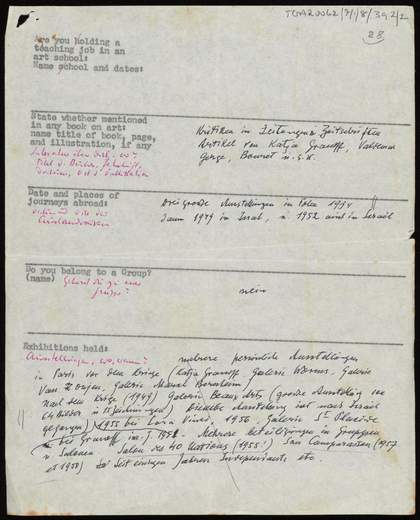 TGA 20062/7/1/8/392/2
28
Are you holding a
teaching job in an
art school:
Name school and dates:
State whether mentioned
in any book on art:
name title of book, page,
and illustration, if any
Kritiken in Zeitungen Zeitschriften
Artikel von Katja Granoff, Valdemar
George, Bouret u.s.w.
Date and places of
journeys abroad:
Drei große Ausstellungen in Polen 1934
dann 1949 in Israel, u 1952 auch in Israel
Auslandsreisen
Do you belong to a Group?
(name)
Gehörst du zu einer
Gruppe?
nein
Exhibitions held:
Ausstellungen, wo, wann?
mehrere persönliche Ausstellungen
in Paris vor dem Kriege (Katja Granoff, Galerie Worms, Galerie
Galerie Marcel Bernheim)
Nach dem Kriege (1949) Galerie Beaux Arts (große Ausstellung
Bilder u
Dieselbe Ausstellung ist nach Israel
gegangen) 1955 bei Lara Vincy, 1956 Galerie St Placide
bei Granoff im J. 1952. Mehrere Beteiligungen in Gruppen
u. Salonen Salon des 40 Nations (1955!) San Comparaison (1957
et 1958) seit einigen Jahren Independants etc.